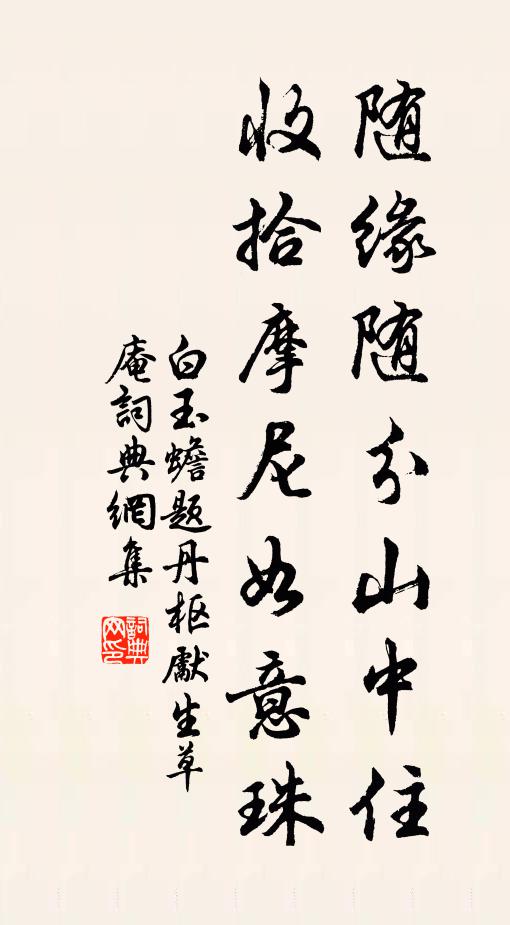 随缘随分山中住
收拾摩尼如意珠
白玉蟾题丹枢獻生草
庵詞典網集
詞典
网印